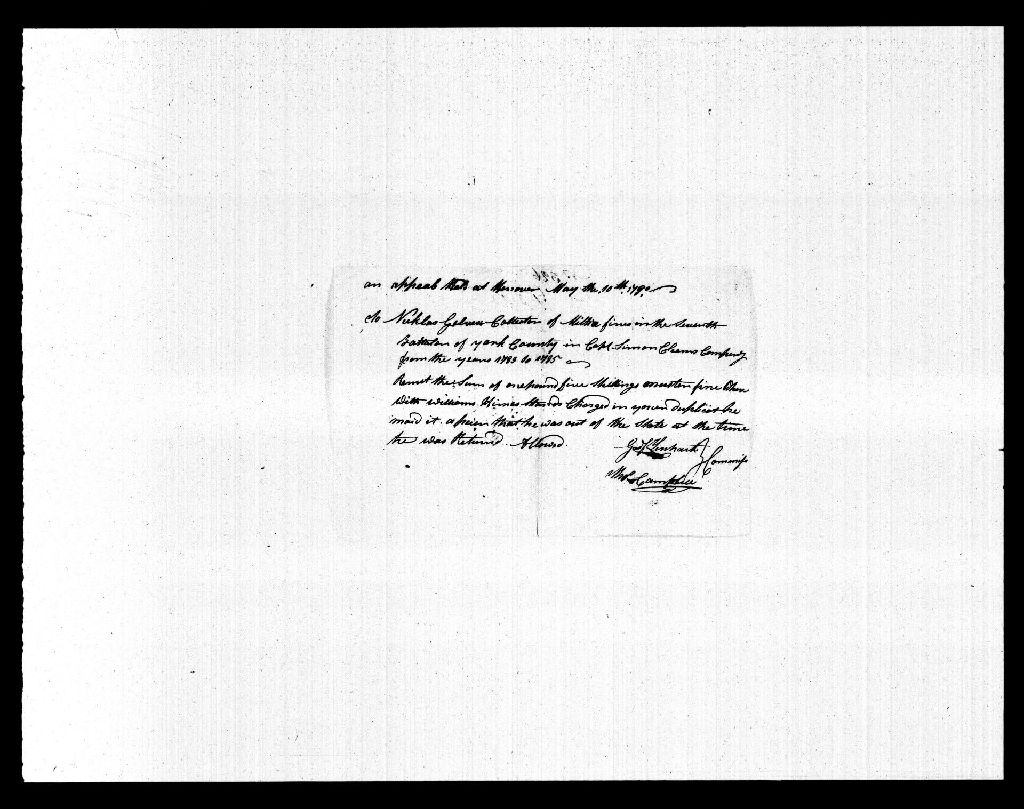 an appeal Held at Hanover May the 10th 1790
To Nicklas Gelwex Collector of Militia fines in the Seventh
Battalion of york County in Capt Simon Clears Company
from the years 1783 to 1785
Remit the Sum of one pound five Shillings muster fine
with williams Himes Stands Charged in your Duplicat he
maid it apeear that he was out of the State at the time
he was Returnd Allowed
Commiss
Campbell